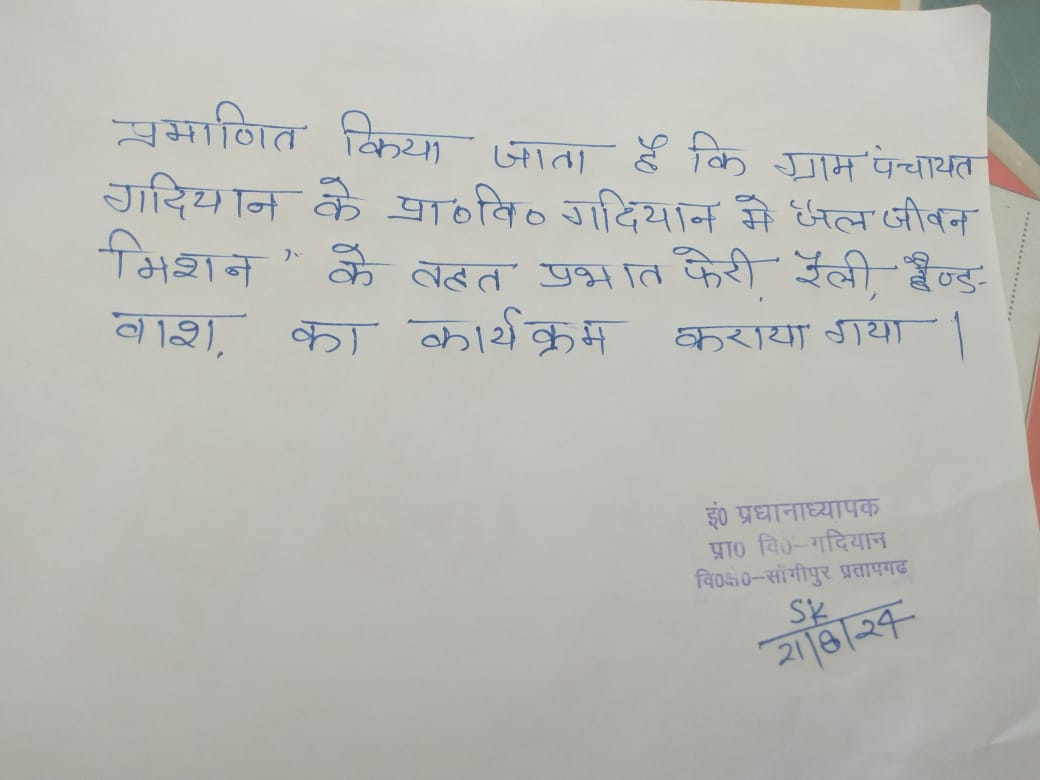 प्रमाणित किया जाता है कि ग्राम पंचायत
गदियान के प्रा०वि० गदियान मे "जल जीवन
मिशन" के तहत प्रभात फेरी, रैली, हैण्ड-
वाश, का कार्यक्रम कराया गया |
इं0 प्रधानाध्यापक
प्रा0 वि0-गदियान
वि0क्षे0-सांगीपुर प्रतापगढ
SK
21/8/24